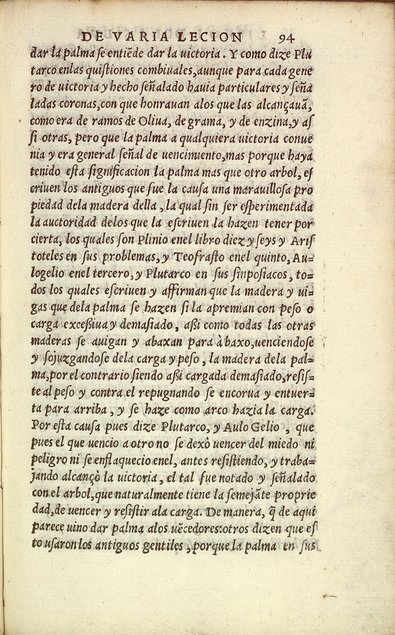 DE VARIA LECION 94
dar la palma se entiẽde dar la uictoria. Y como dize Plu
tarco enlas quistiones combiuales, aunque para cada gene
ro de uictoria y hecho señalado hauia particulares y seña
ladas coronas, con que honrauan alos que las alcançauã,
como era de ramos de Oliua, de grama, y de enzina, y as
si otras, pero que la palma a qualquiera uictoria conue
nia y era general señal de uencimuento, mas porque haya
tenido esta significacion la palma mas que otro arbol, es
criuen los antiguos que fue la causa una marauillosa pro
piedad dela madera della, la qual sin ser esperimentada
la auctoridad delos que la escriuen la hazen tener por
cierta, los quales son Plinio enel libro diez y seys y Aris
toteles en sus problemas, y Teofrasto enel quinto, Au-
logelio enel tercero, y Plutarco en sus sinposiacos, to-
dos los quales escriuen y affirman que la madera y ui-
gas que dela palma se hazen si la apremian con peso o
carga excessiua y demasiado, assi como todas las otras
maderas se auigan y abaxan para à baxo, uenciendose
y sojuzgandose de la carga y peso, la madera dela pal-
ma, por el contrario siendo assi cargada demasiado, resis-
te al peso y contra el repugnando se encorua y entuer-
ta para arriba, y se haze como arco hazia la carga.
Por esta causa pues dize Plutarco, y Aulo Gelio, que
pues el que uencio a otro no se dexò uencer del miedo ni
peligro ni se enflaquecio enel, antes resistiendo, y traba-
jando alcançò la uictoria, el tal fue notado y señalado
con el arbol, que naturalmente tiene la semejãte proprie
dad, de uencer y resistir ala carga. De manera, q̃ de aqui
parece uino dar palma alos uẽcedores: otros dizen que es
to usaron los antiguos gentiles, porque la palma en sus